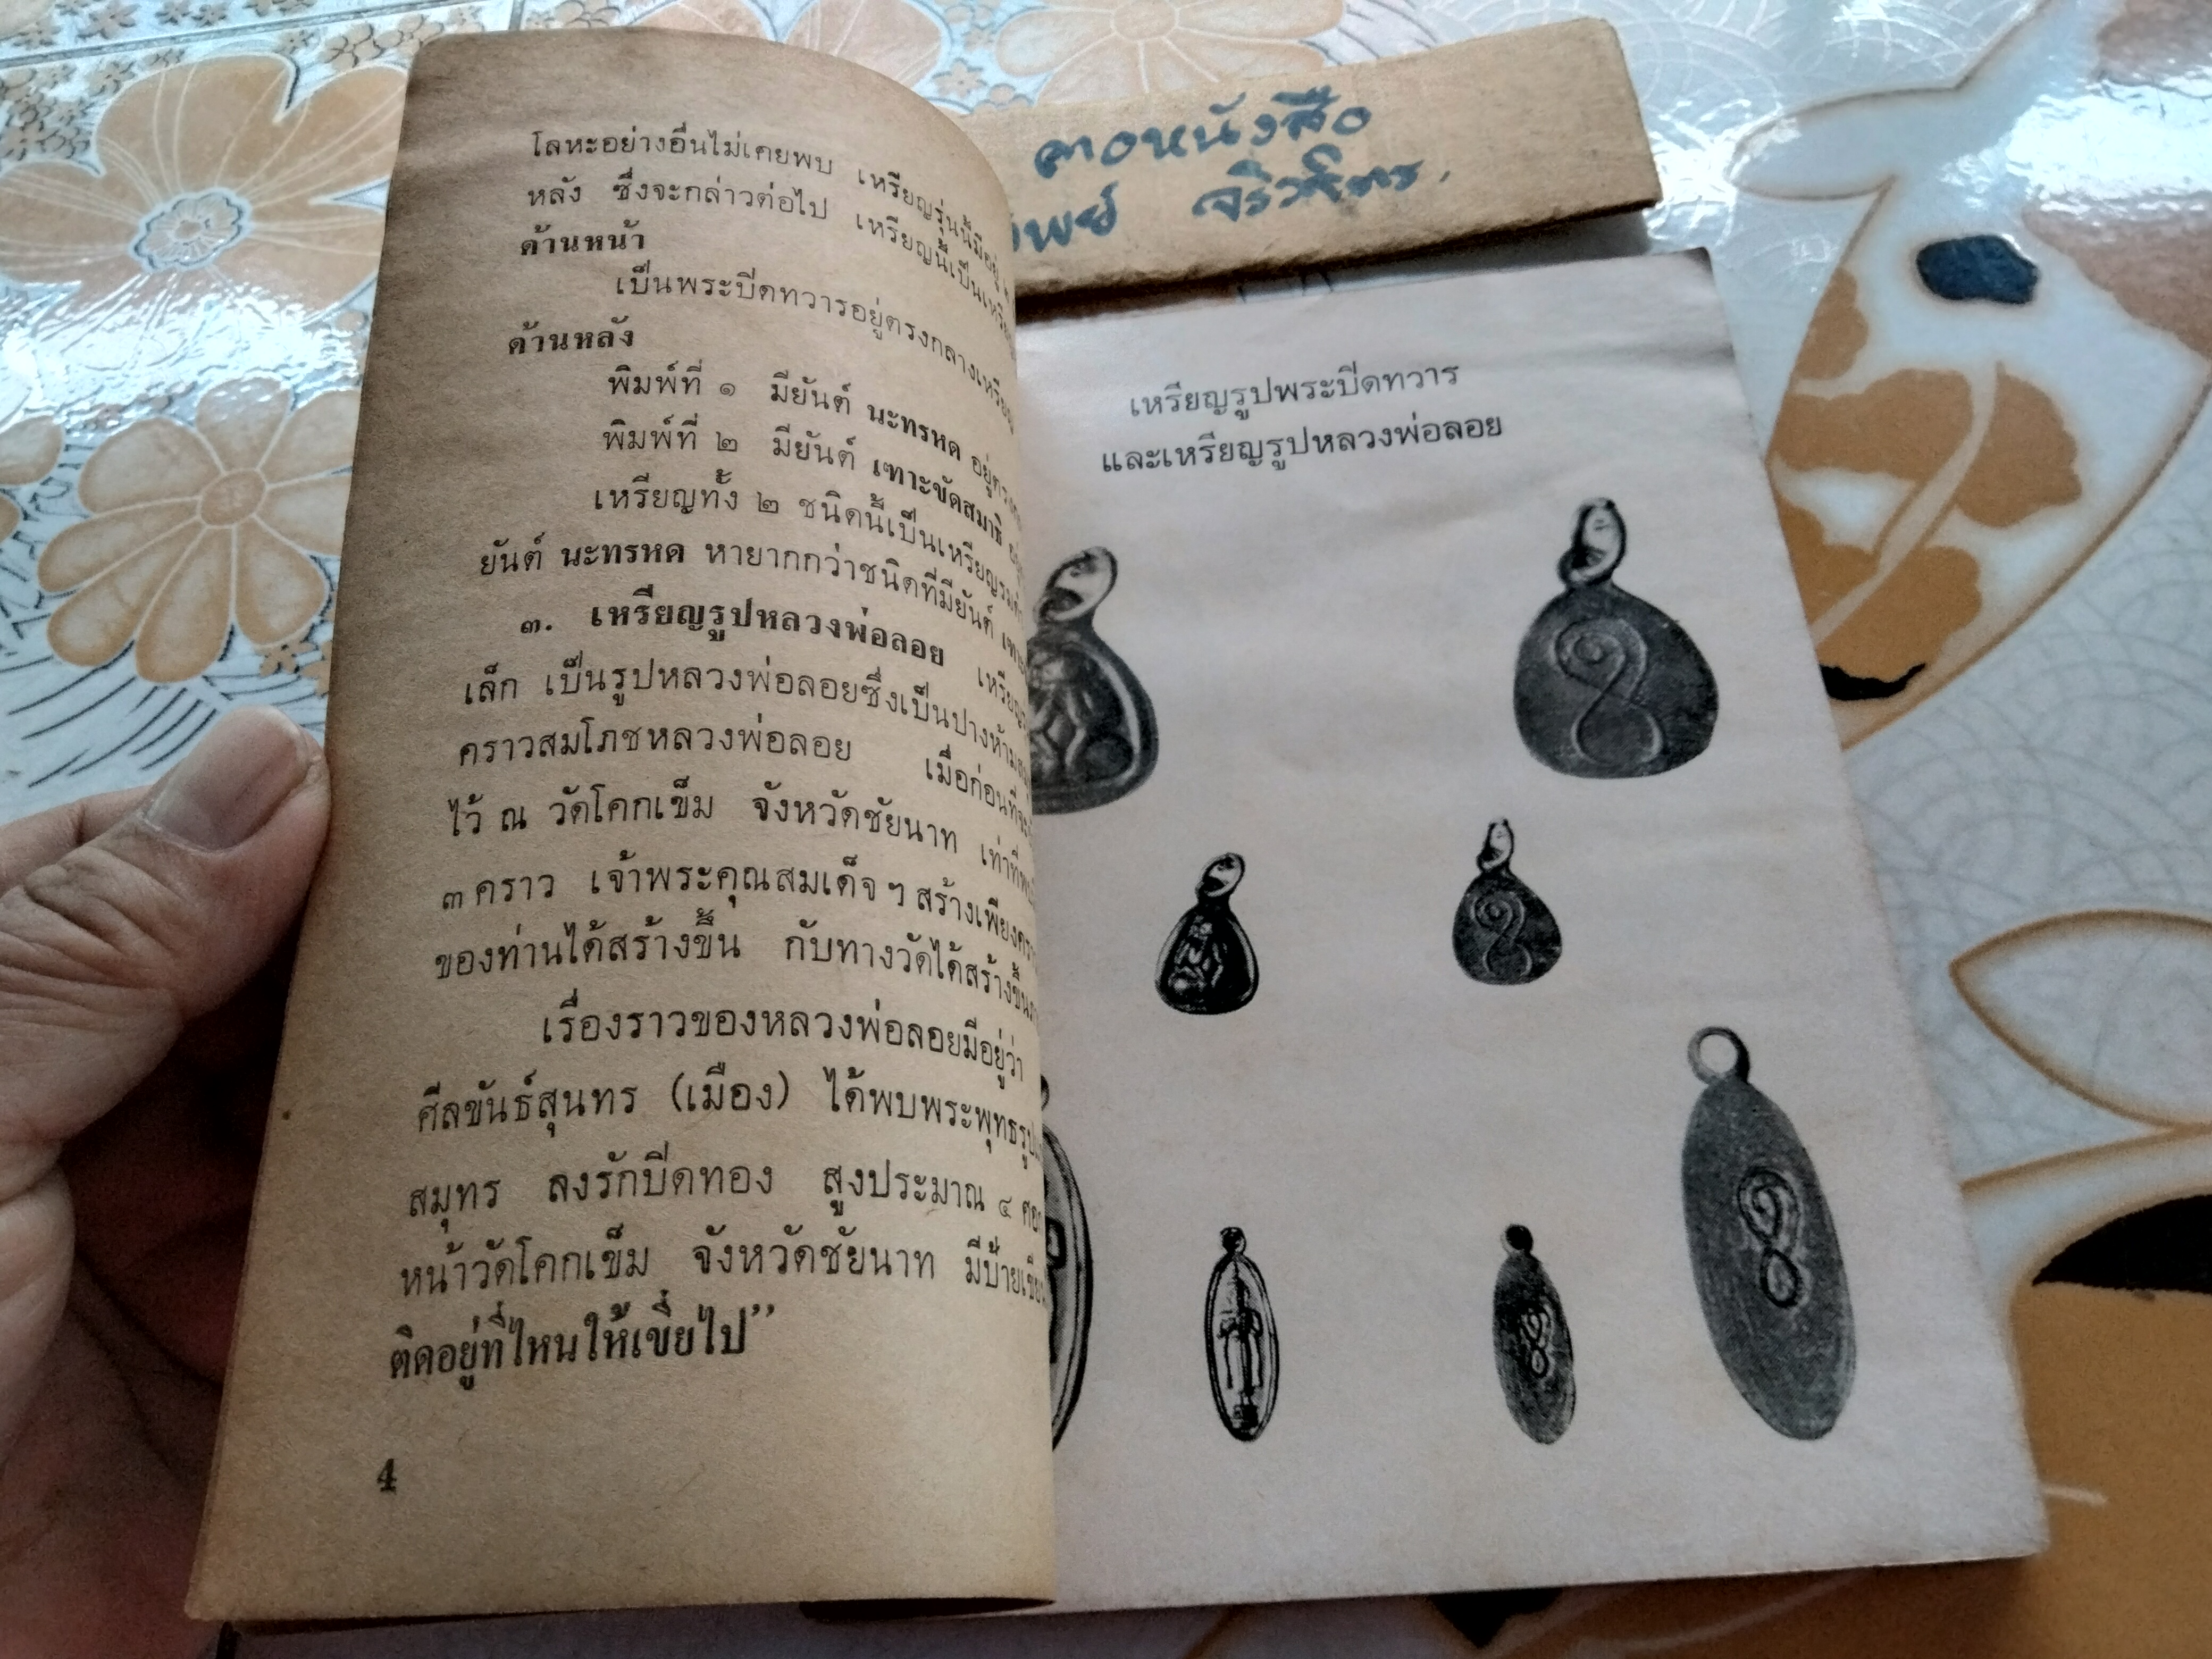 โลหะอย่างอื่นไม่เคยพบ เหรียญรุ่นนี้มีอยู่
หลัง ซึ่งจะกล่าวต่อไป เหรียญนี้เป็นเหรียญ
ด้านหน้า
เป็นพระปิดทวารอยู่ตรงกลางเหรียญ
ด้านหลัง
พิมพ์ที่ ๑ มียันต์ นะทรหด
พิมพ์ที่ ๒ มียันต์ เฑาะขัดสมาธิ
เหรียญทั้ง ๒ ชนิดนี้เป็นเหรียญรมดำ
ยันต์ นะทรหด หายากกว่าชนิดที่มียันต์
๓. เหรียญรูปหลวงพ่อลอย
เล็ก เป็นรูปหลวงพ่อลอยซึ่งเป็นปางห้าม
คราวสมโภชหลวงพ่อลอย เมื่อก่อนที่จะ
ไว้ ณ วัดโคกเข็ม จังหวัดชัยนาท
๓ คราว เจ้าพระคุณสมเด็จ ฯ สร้างเพียง
ของท่านได้สร้างขึ้น กับทางวัดได้สร้างขึ้น
เรื่องราวของหลวงพ่อลอยมีอยู่ว่า
ศีลขันธ์สุนทร (เมือง) ได้พบพระพุทธรูป
สมุทร ลงรักปิดทอง สูงประมาณ ๔ ศอก
หน้าวัดโคกเข็ม จังหวัดชัยนาท มีป้ายเขียน
ติดอยู่ที่ไหนให้เขี่ยไป”
4
หนังสือ
เหรียญรูปพระปิดทวาร
และเหรียญรูปหลวงพ่อลอย